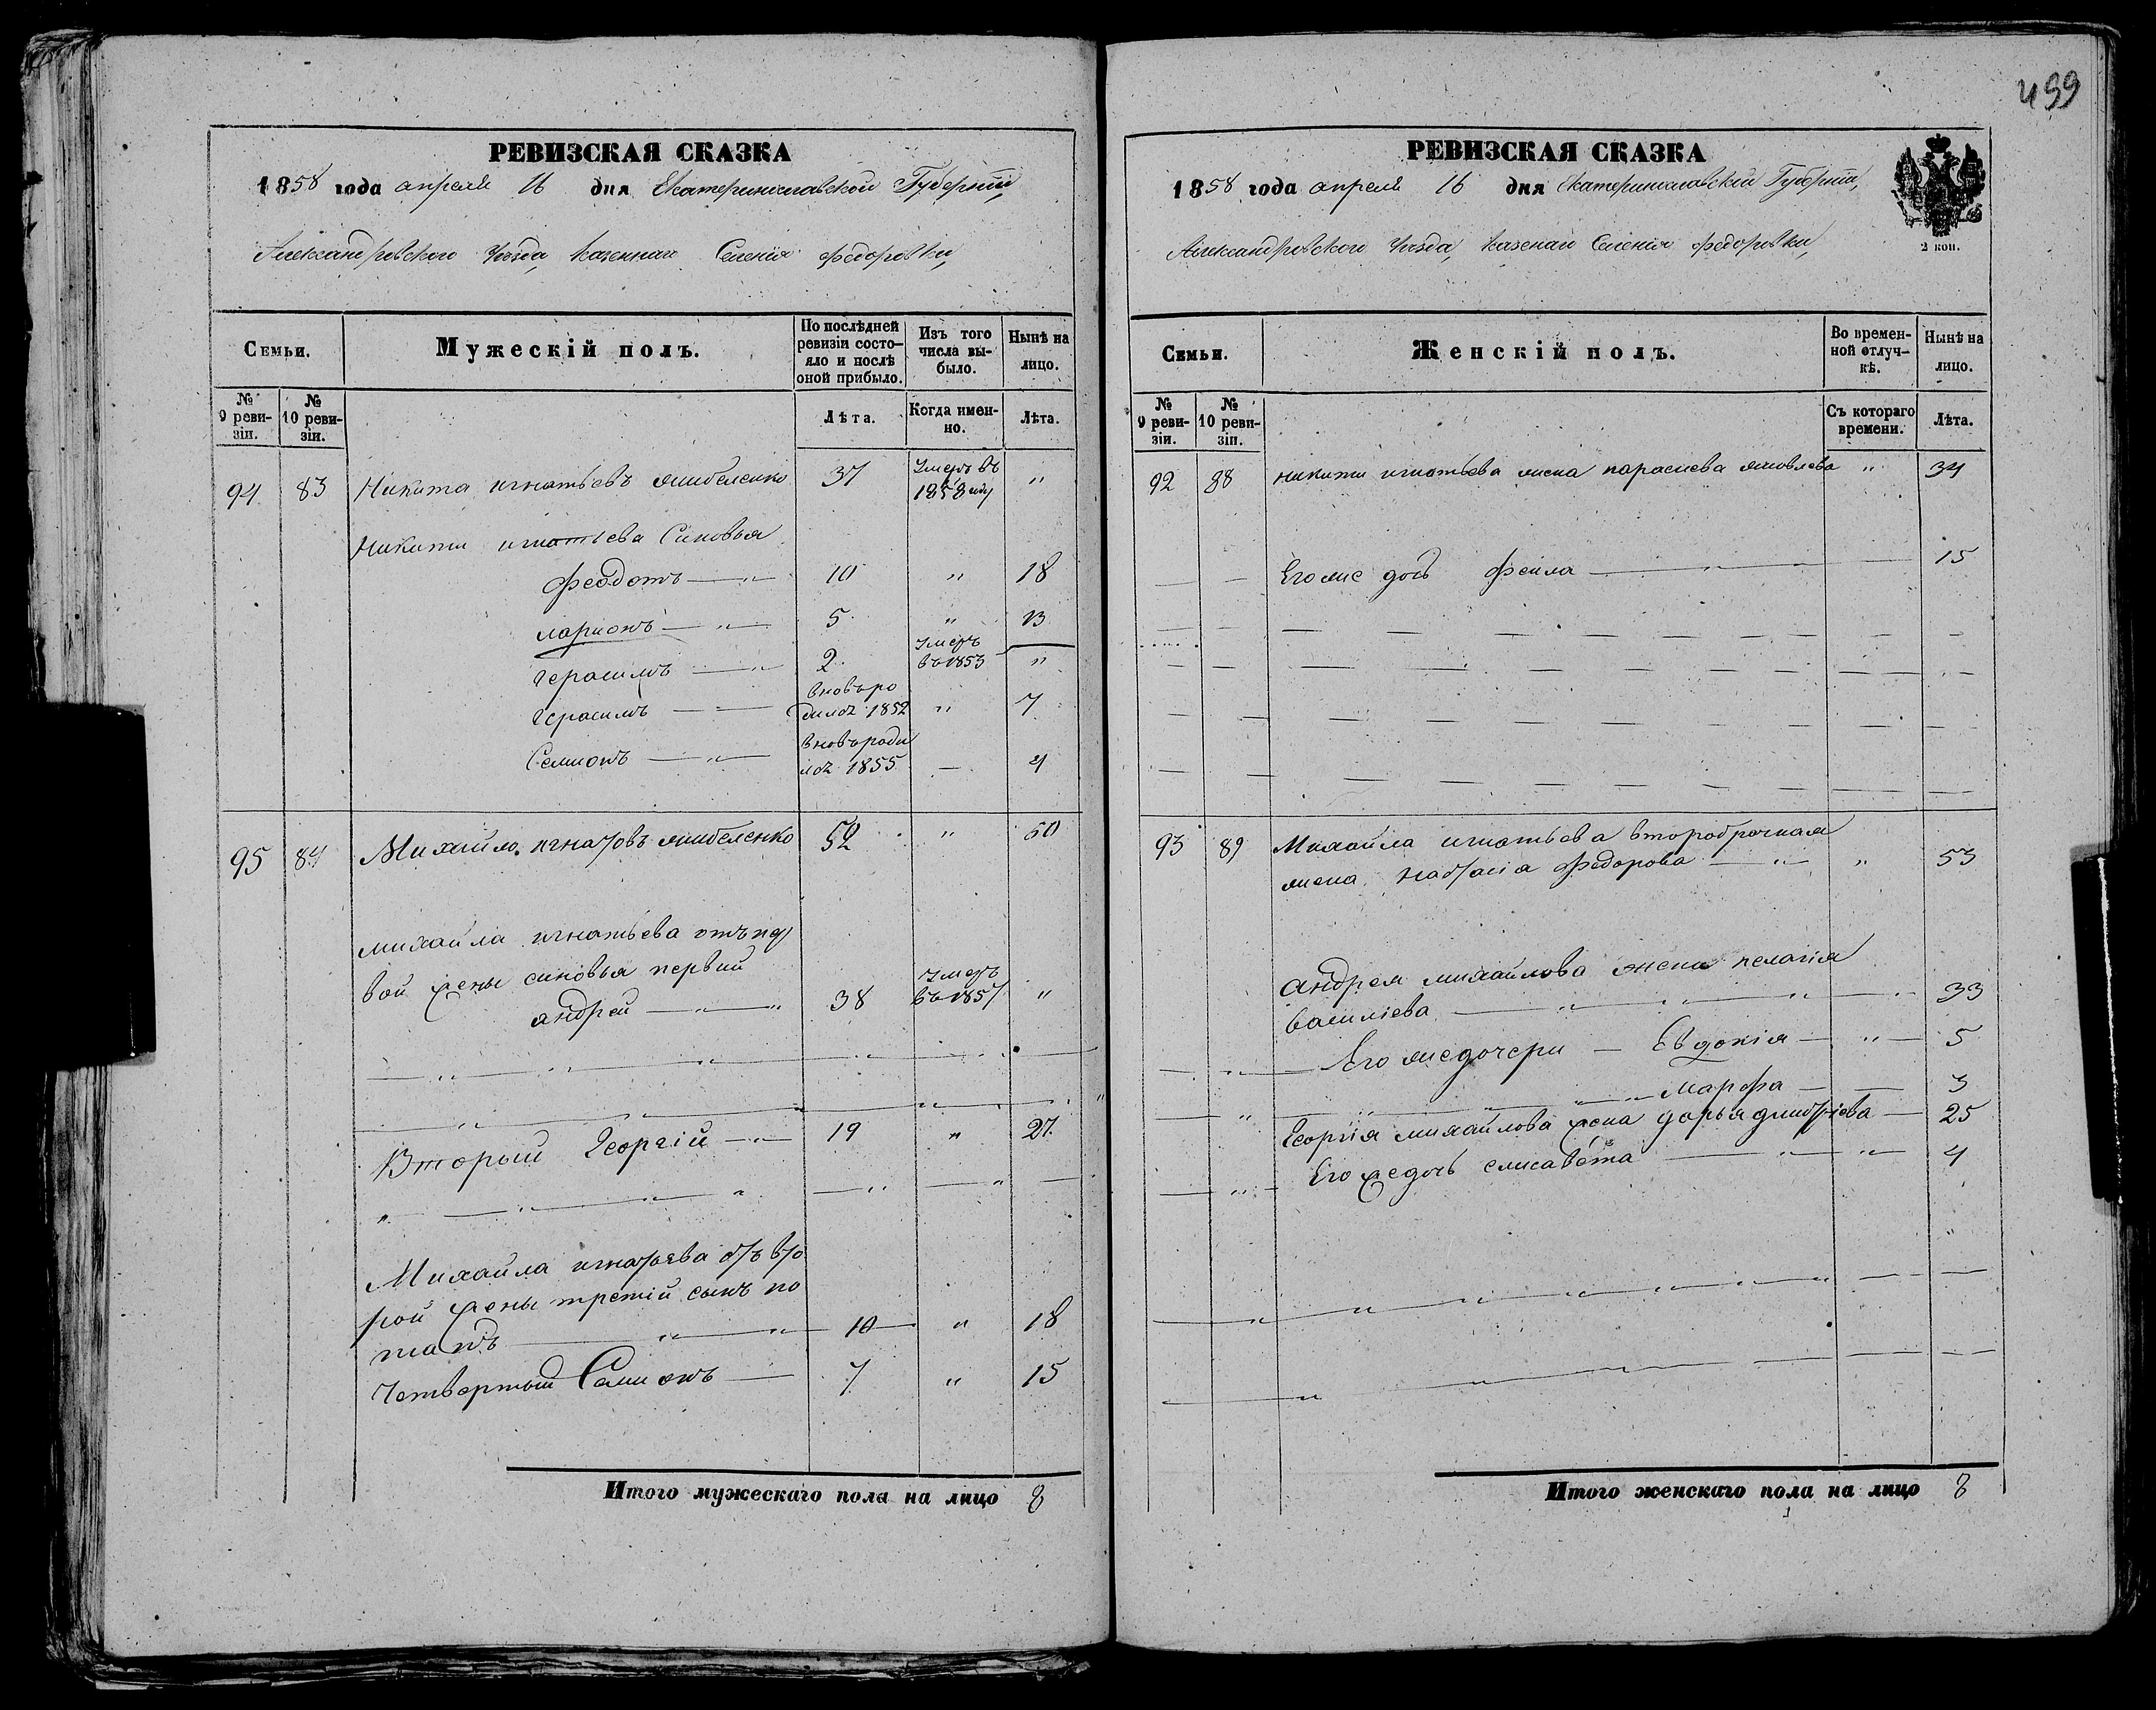 499
РЕВИЗСКАЯ СКАЗКА
1858 года апреля 16 дня Екатеринославской Губернии,
Александровского Уезда, казеннаго Селения Федоровки,
Семьи.
Мужескій полъ.
По послѣдней ревизіи состояло и послѣ оной прибыло.
Изъ того числа выбыло.
Нынѣ на лицо.
№ 9 ревизіи.
№ 10 ревизіи.
Лѣта.
Когда именно.
Лѣта.
94 83 Никита игнатьевъ 37 Умеръ въ 1858 году "
Никити игнатьева Синовья
Феодотъ — " — 10 " 18
ларионъ — " — 5 " 13
герасимъ — " 2 Умеръ въ 1853 "
герасимъ — — вновь родился 1852 " 7
Семионъ — " — вновь родился 1855 — 4
95 84 Михайло игнатовъ 52 " 60
михайла игнатьева отъ пер
вой жены синовья первий
андрей — " — " 38 Умеръ въ 1857 "
Вторый Георгий — " — 19 " 27
Михайла игнатьева отъ вто
рой жены третий сынъ по
тапъ — " — " — 10 — " 18
Четвертый Семионъ — 7 " 15
Итого мужескаго пола на лицо 8
РЕВИЗСКАЯ СКАЗКА
2 коп.
1858 года апреля 16 дня Екатеринославский Губернии,
Александровского Уезда, казенаи Селения Федоровки,
Семьи.
Женскій полъ.
Во временной отлучкѣ.
Нынѣ на лицо.
№ 9 ревизіи.
№ 10 ревизіи.
Съ котораго времени.
Лѣта.
92 88 никити игнатьева жена парасиева яковлева " 34
Его же дочь Фекла — — 15
93 89 Михайла игнатьева второбрачная
жена настасия Федорова — " — " 53
андрея михайлова жена пелагия
василиева — " — " — " — 33
Его же дочери — Евдокия — " — 5
Марфа — — 3
Георгия михайлова жена дарья дмитриева — 25
Его же дочь елисавета — " — " — 4
Итого женскаго пола на лицо 8